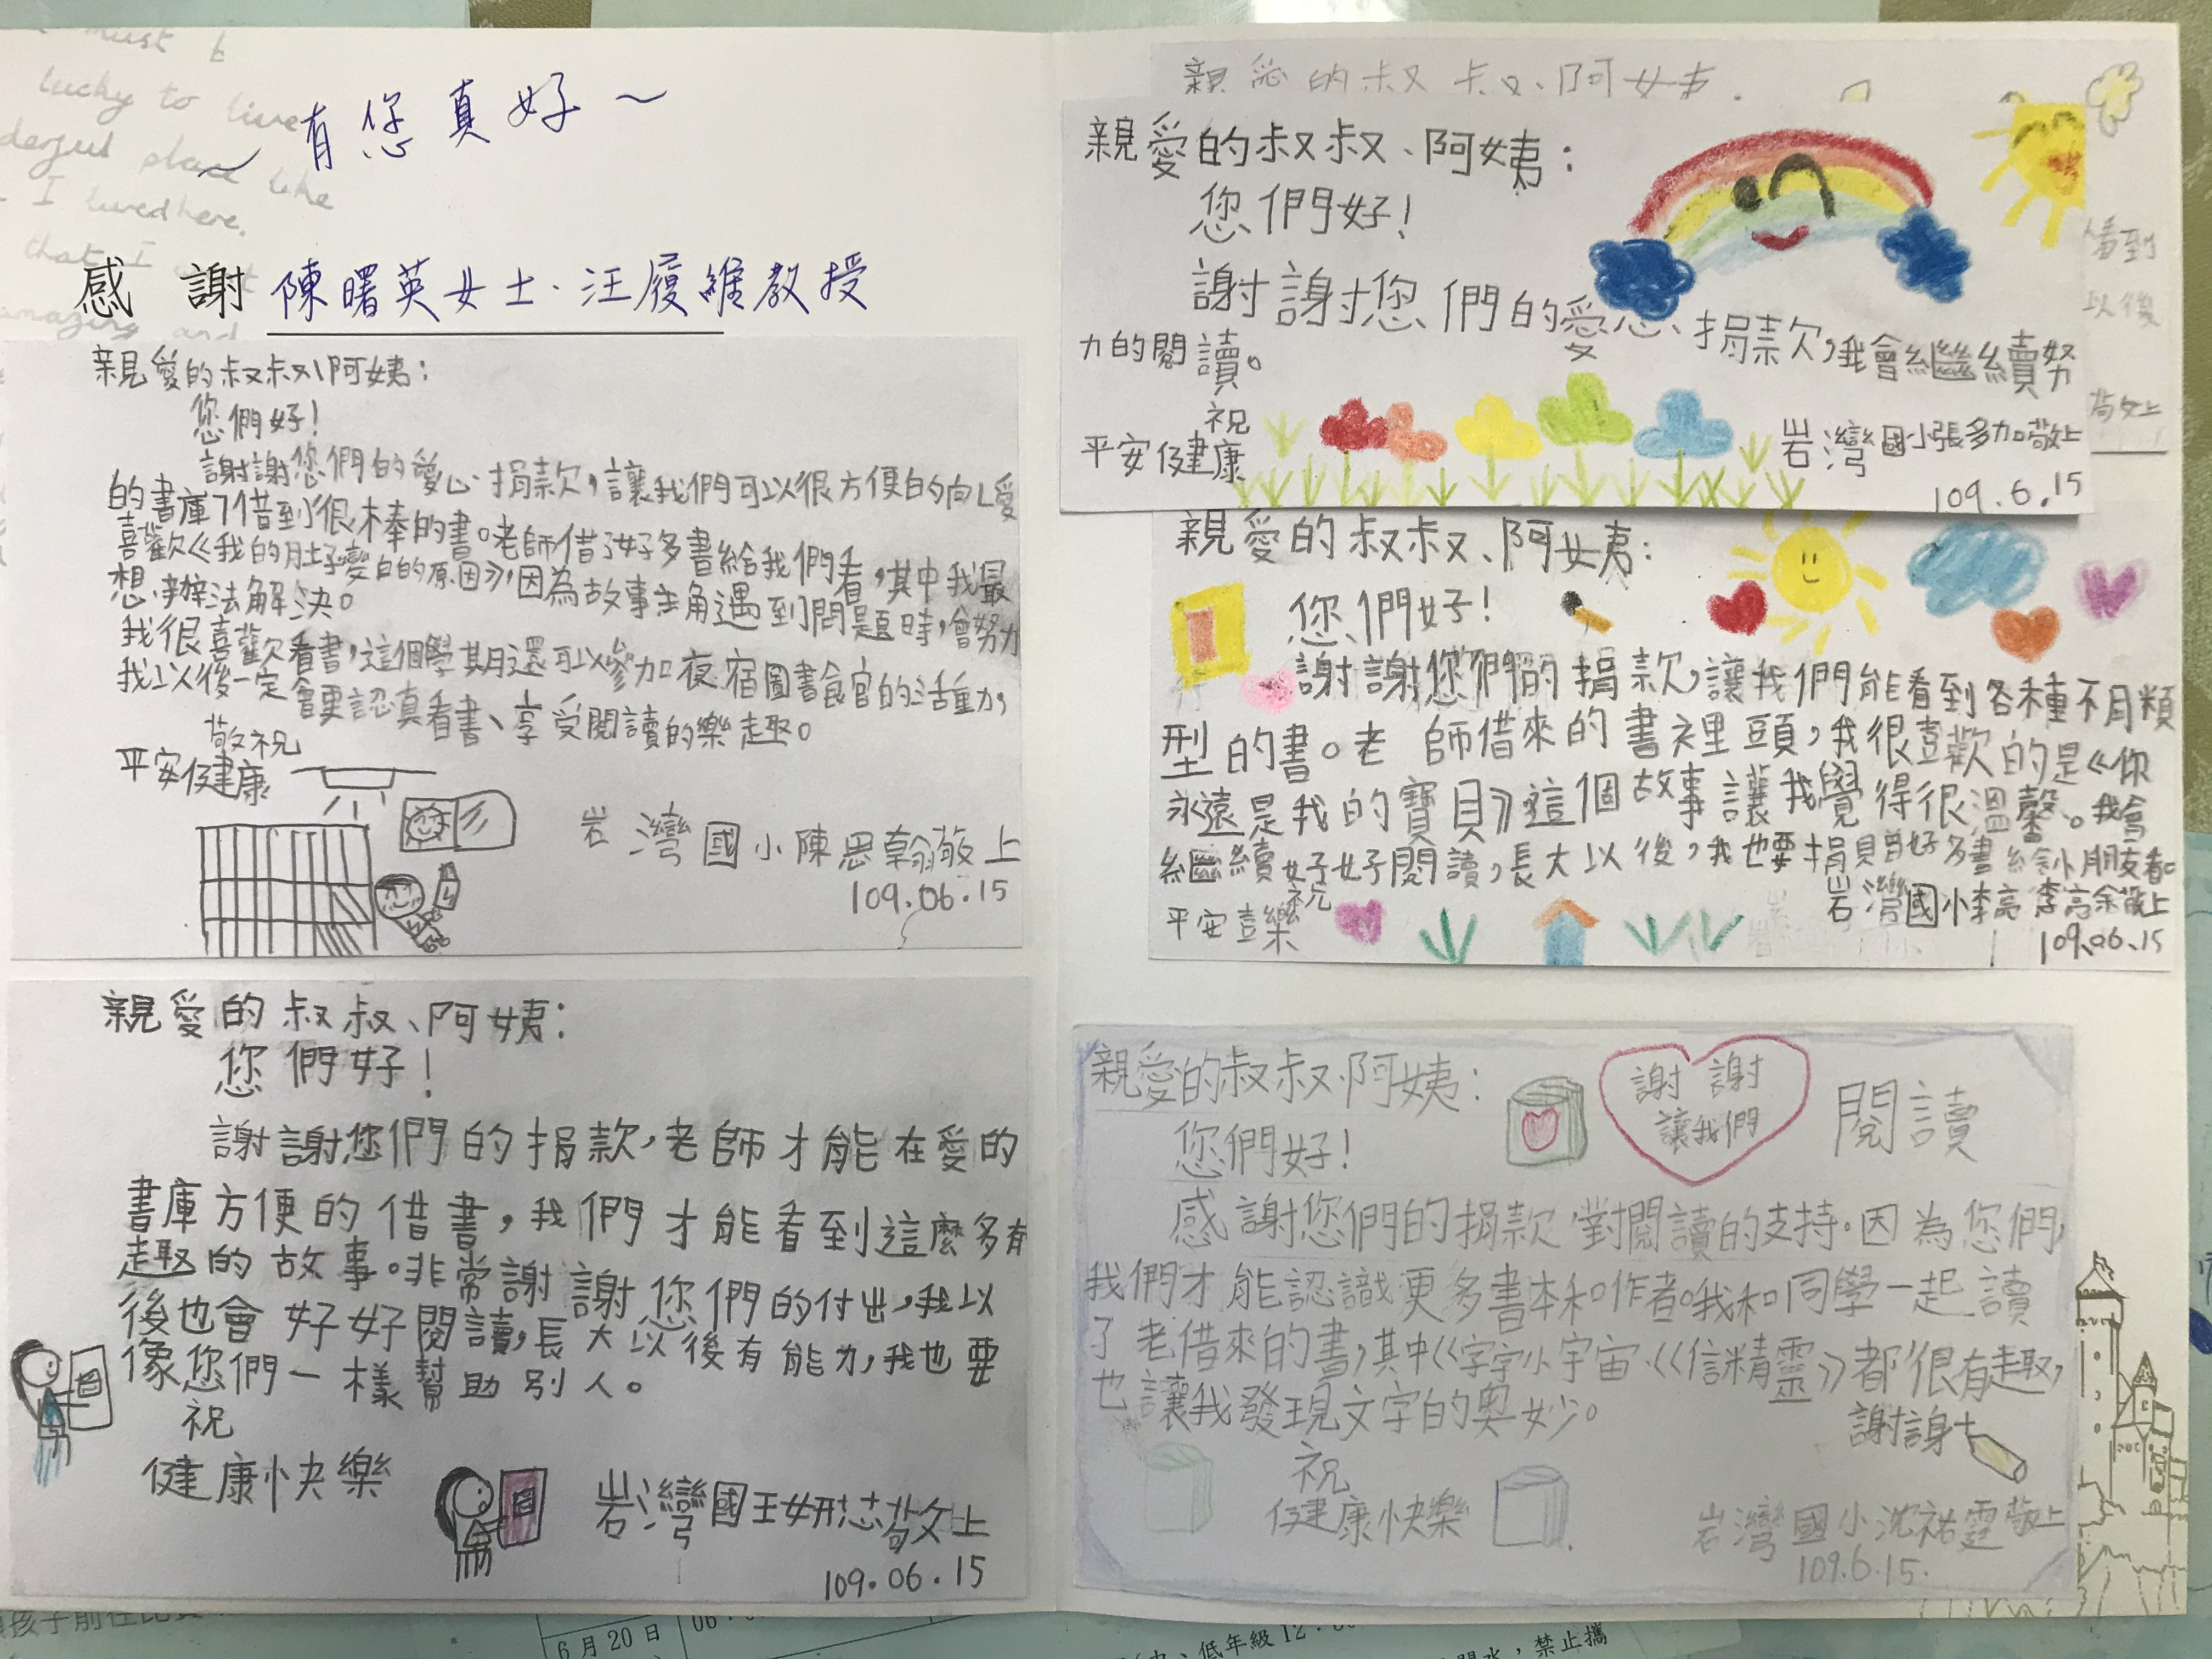 must b
lucky to live
place like
I lived here.
that I
amazing and
～有您真好～
感謝 陳曙英女士、汪履維教授
親愛的叔叔、阿姨：
您們好！
謝謝您們的愛心捐款，讓我們可以很方便的向「愛
的書庫」借到很棒的書。老師借了好多書給我們看，其中我最
喜歡《我的肚子變白的原因》，因為故事主角遇到問題時，會努力
想辦法解決。
我很喜歡看書，這個學期還可以參加夜宿圖書館的活動，
我以後一定會更認真看書、享受閱讀的樂趣。
敬祝
平安健康
岩灣國小陳思翰敬上
109.06.15
親愛的叔叔、阿姨：
您們好！
謝謝您們的捐款，老師才能在愛的
書庫方便的借書，我們才能看到這麼多有
趣的故事。非常謝謝您們的付出，我以
後也會好好閱讀，長大以後有能力，我也要
像您們一樣幫助別人。
祝
健康快樂
岩灣國王妍志敬上
109.06.15
親愛的叔叔、阿姨
親愛的叔叔、阿姨：
您們好！
謝謝您們的愛心捐款，我會繼續努
力的閱讀。
祝
平安健康
岩灣國小張多加敬上
109.6.15
看到
以後
敬上
親愛的叔叔、阿姨：
您們好！
謝謝您們的捐款，讓我們能看到各種不同類
型的書。老師借來的書裡頭，我很喜歡的是《你
永遠是我的寶貝》這個故事讓我覺得很溫馨。我會
繼續好好閱讀，長大以後，我也要捐贈好多書給小朋友看。
祝
平安喜樂
岩灣國小李高余敬上
109.06.15
親愛的叔叔、阿姨：
您們好！
謝謝
讓我們
閱讀
感謝您們的捐款，對閱讀的支持。因為您們，
我們才能認識更多書本和作者。我和同學一起讀
了老借來的書，其中《字字小宇宙、《信精靈》都很有趣，
也讓我發現文字的奧妙。
謝謝
祝
健康快樂
岩灣國小沈祐霆敬上
109.6.15.
6月20日
06
、低年級12：
，禁止攜